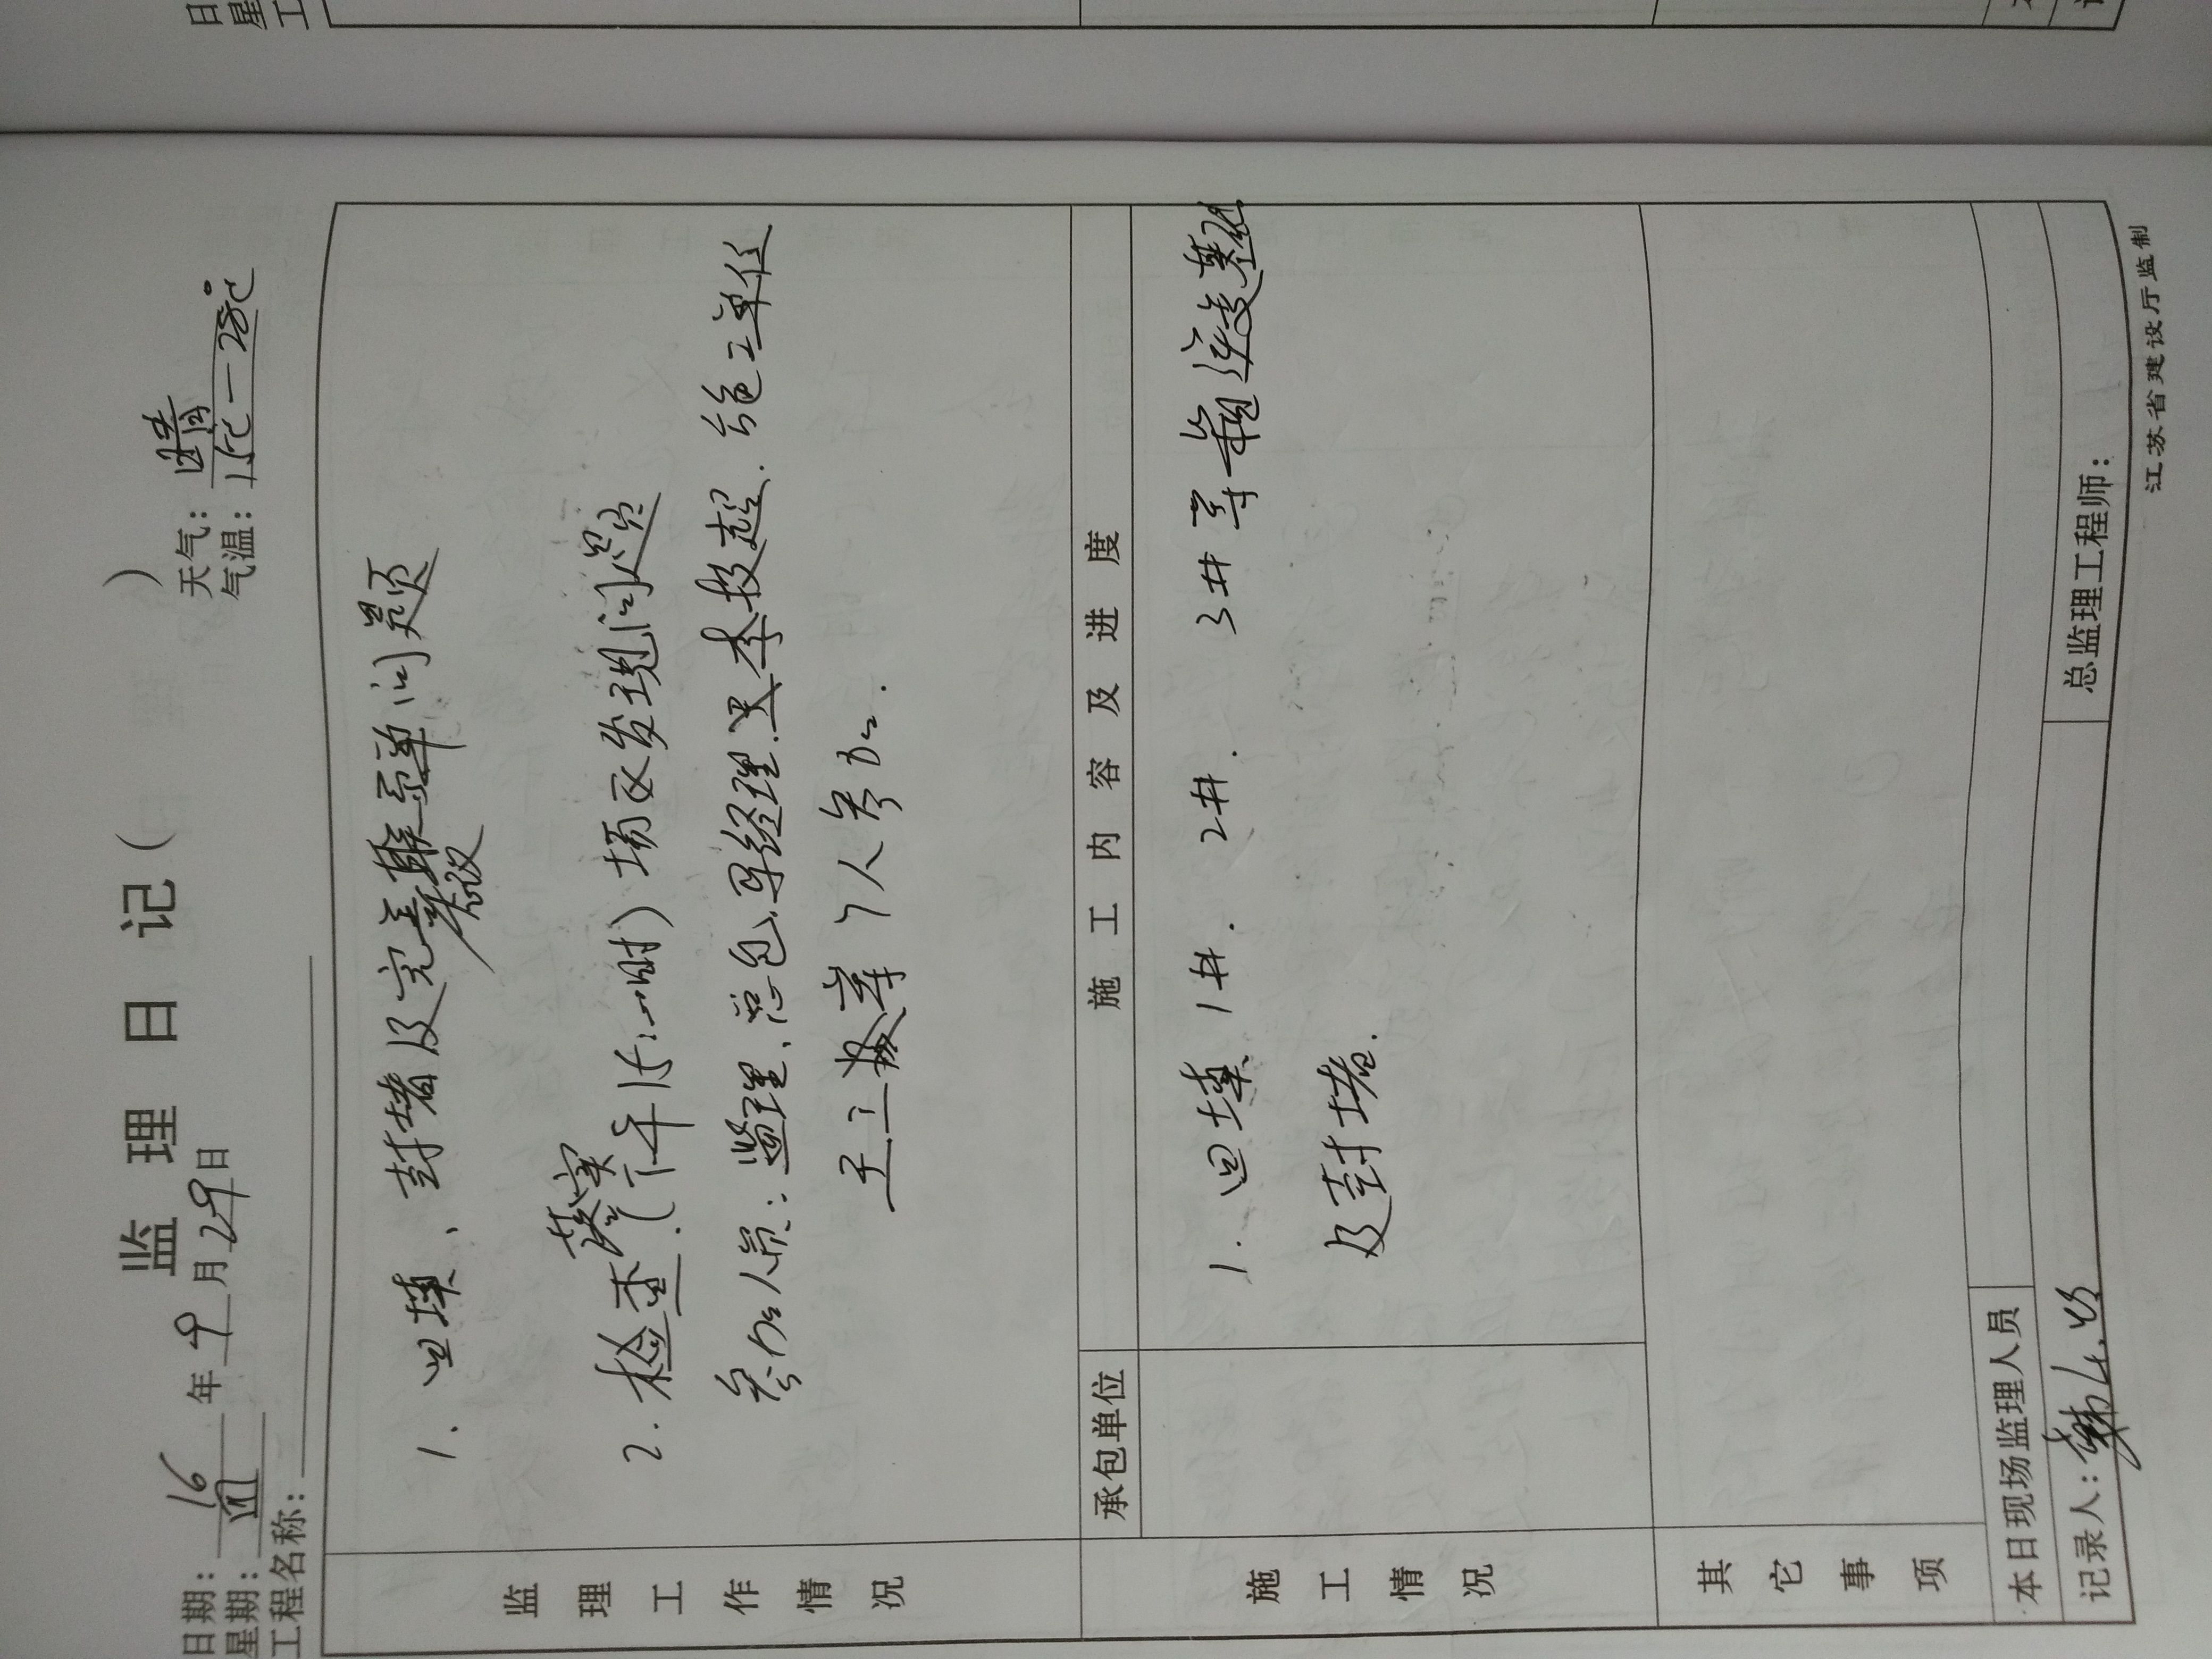 监理日记( )
日期: 16 年 9 月 29 日 天气: 晴
星期: 四 气温: 15℃-28℃
工程名称:
监理工作情况
1. 回填、封堵及完善联系单问题
2. 检查 落实 (下午15:一时) 场区发现问题
参加人员: 监理、总包、李技超、施工单位
7人参加.
施工情况
承包单位
施工内容及进度
1. 回填 1#. 2#. 3#
及封堵.
其它事项
本日现场监理人员
记录人: 总监理工程师:
江苏省建设厅监制
日
星
工